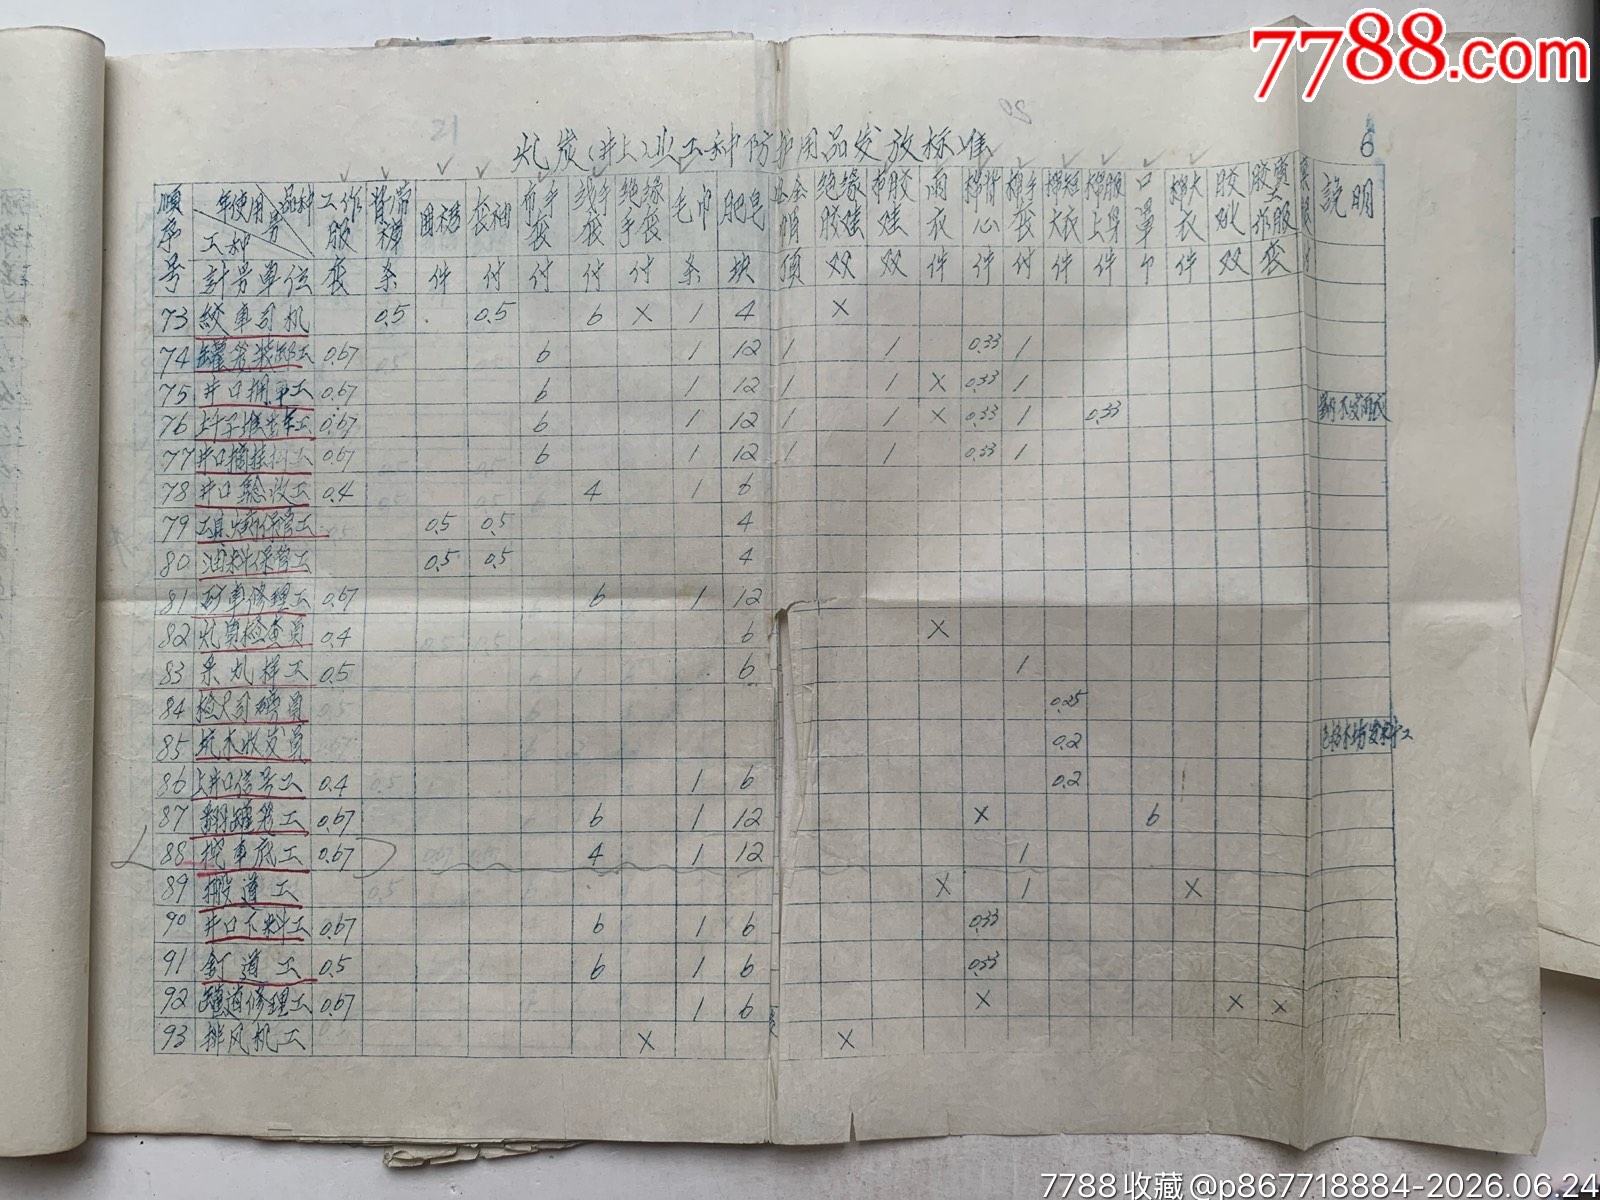 7788.com
21
6
(井上)业工种防护用品发放标准
順序号 年使用号 品种 工种 工作服 围裙 套袖 布手套 线手套 绝缘手套 毛巾 肥皂 绝缘胶鞋 布胶鞋 雨衣 棉背心 棉手套 棉短大衣 口罩 棉大衣 説明
計号单位 套 条 件 付 付 付 付 条 块 頂 双 双 件 件 付 件 件 个 件 双 套
73 绞车司机 0.5 0.5 6 × 1 4 ×
74 罐笼装卸工 0.67 6 1 12 1 1 0.33 1
75 井口拥車工 0.67 6 1 12 1 1 × 0.33 1
76 0.67 6 1 12 1 1 × 0.33 1 0.33
77 井口摘挂工 0.67 6 1 12 1 1 0.33 1
78 井口驗收工 0.4 4 1 6
79 保管工 0.5 0.5 4
80 油料保管工 0.5 0.5 4
81 矿車修理工 0.67 6 1 12
82 检查員 0.4 6 ×
83 样工 0.5 6 1
84 0.25
85 坑木收发員 0.2
86 上井口信号工 0.4 1 6 0.2
87 翻罐笼工 0.67 6 1 12 × 6
88 車底工 0.67 4 1 12 1
89 搬道工 × 1 ×
90 井口下料工 0.67 6 1 6 0.33
91 釘道工 0.5 6 1 6 0.33
92 罐道修理工 0.67 1 6 × × ×
93 排风机工 × ×
7788收藏@p867718884-2026.06.24